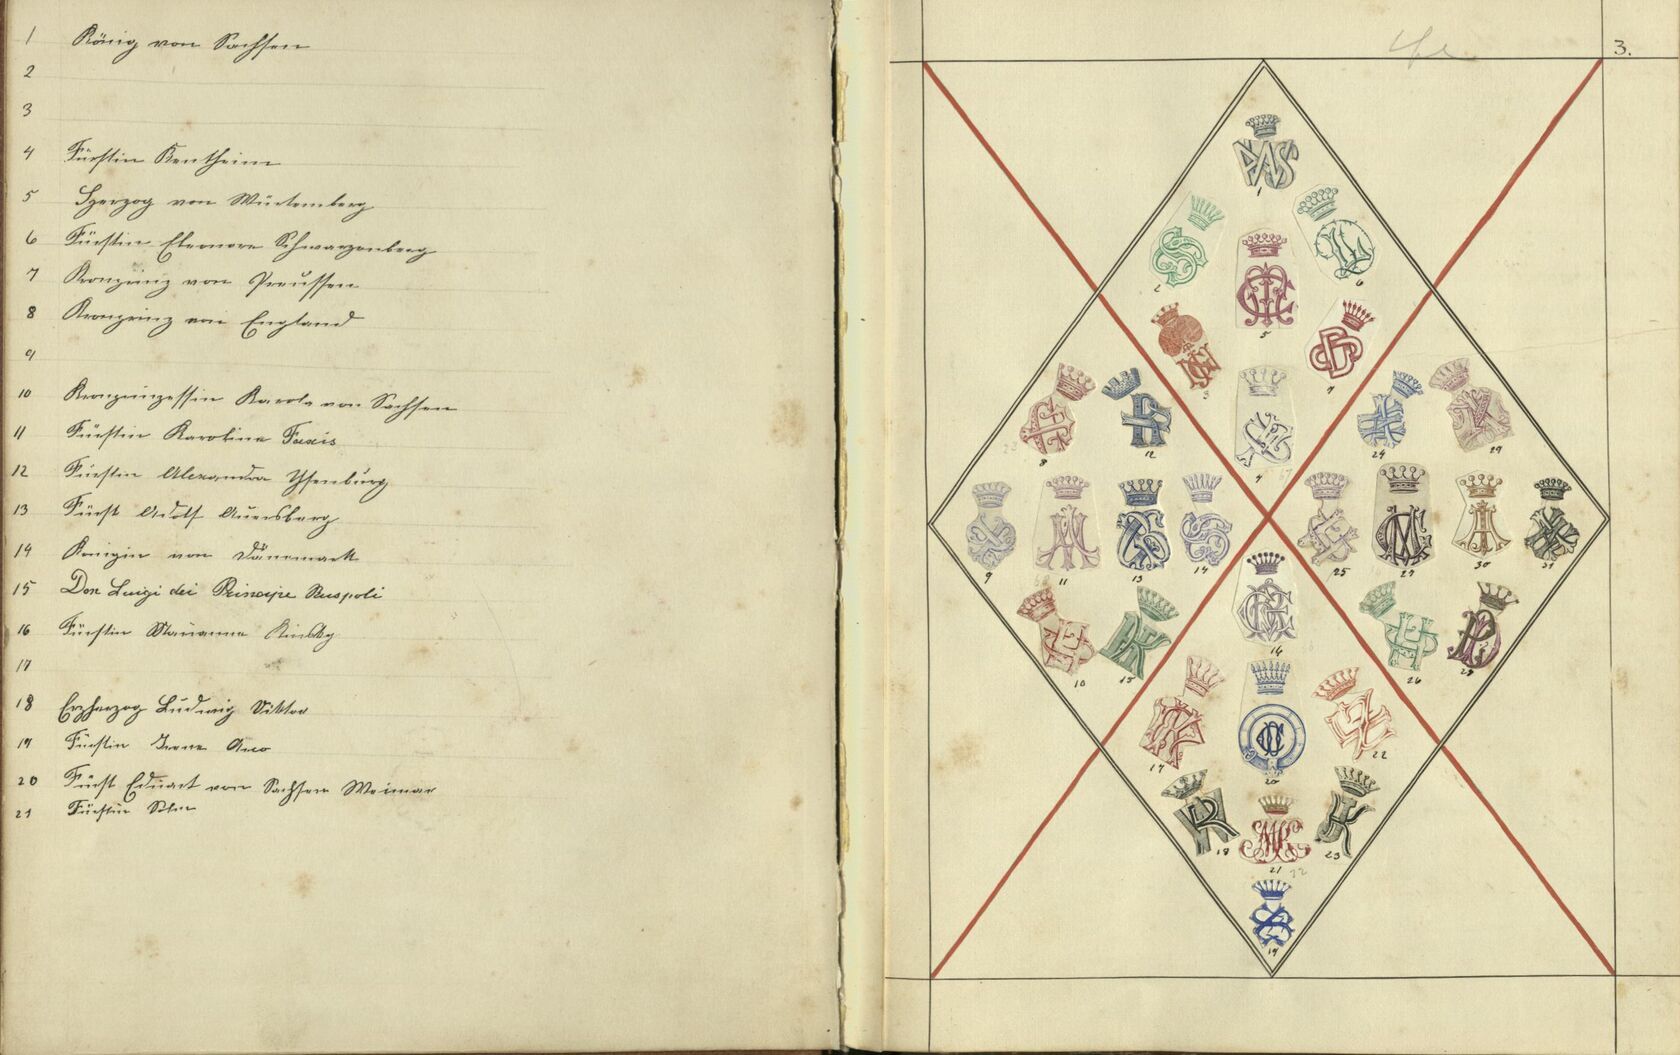 1 König von Sachsen
2
3
4 Fürstin Bentheim
5 Herzog von Würtemberg
6 Fürstin Eleonore Schwarzenberg
7 Kronprinz von Preussen
8 Kronprinz von England
9
10 Kronprinzessin Karola von Sachsen
11 Fürstin Karoline Taxis
12 Fürstin Alexandra Ysenburg
13 Fürst Adolf Auersberg
14 Königin von Dänemark
15 Don Luigi dei Principe Ruspoli
16 Fürstin Marianne Kinsky
17
18 Erzherzog Ludwig Viktor
19 Fürstin Irene
20 Fürst Eduart von Sachsen Weimar
21 Fürstin
3.
1
2
6
5
3
7
4
8
12
24
29
9
11
13
14
25
27
30
31
10
15
16
26
28
17
20
22
18
21
32
23
19